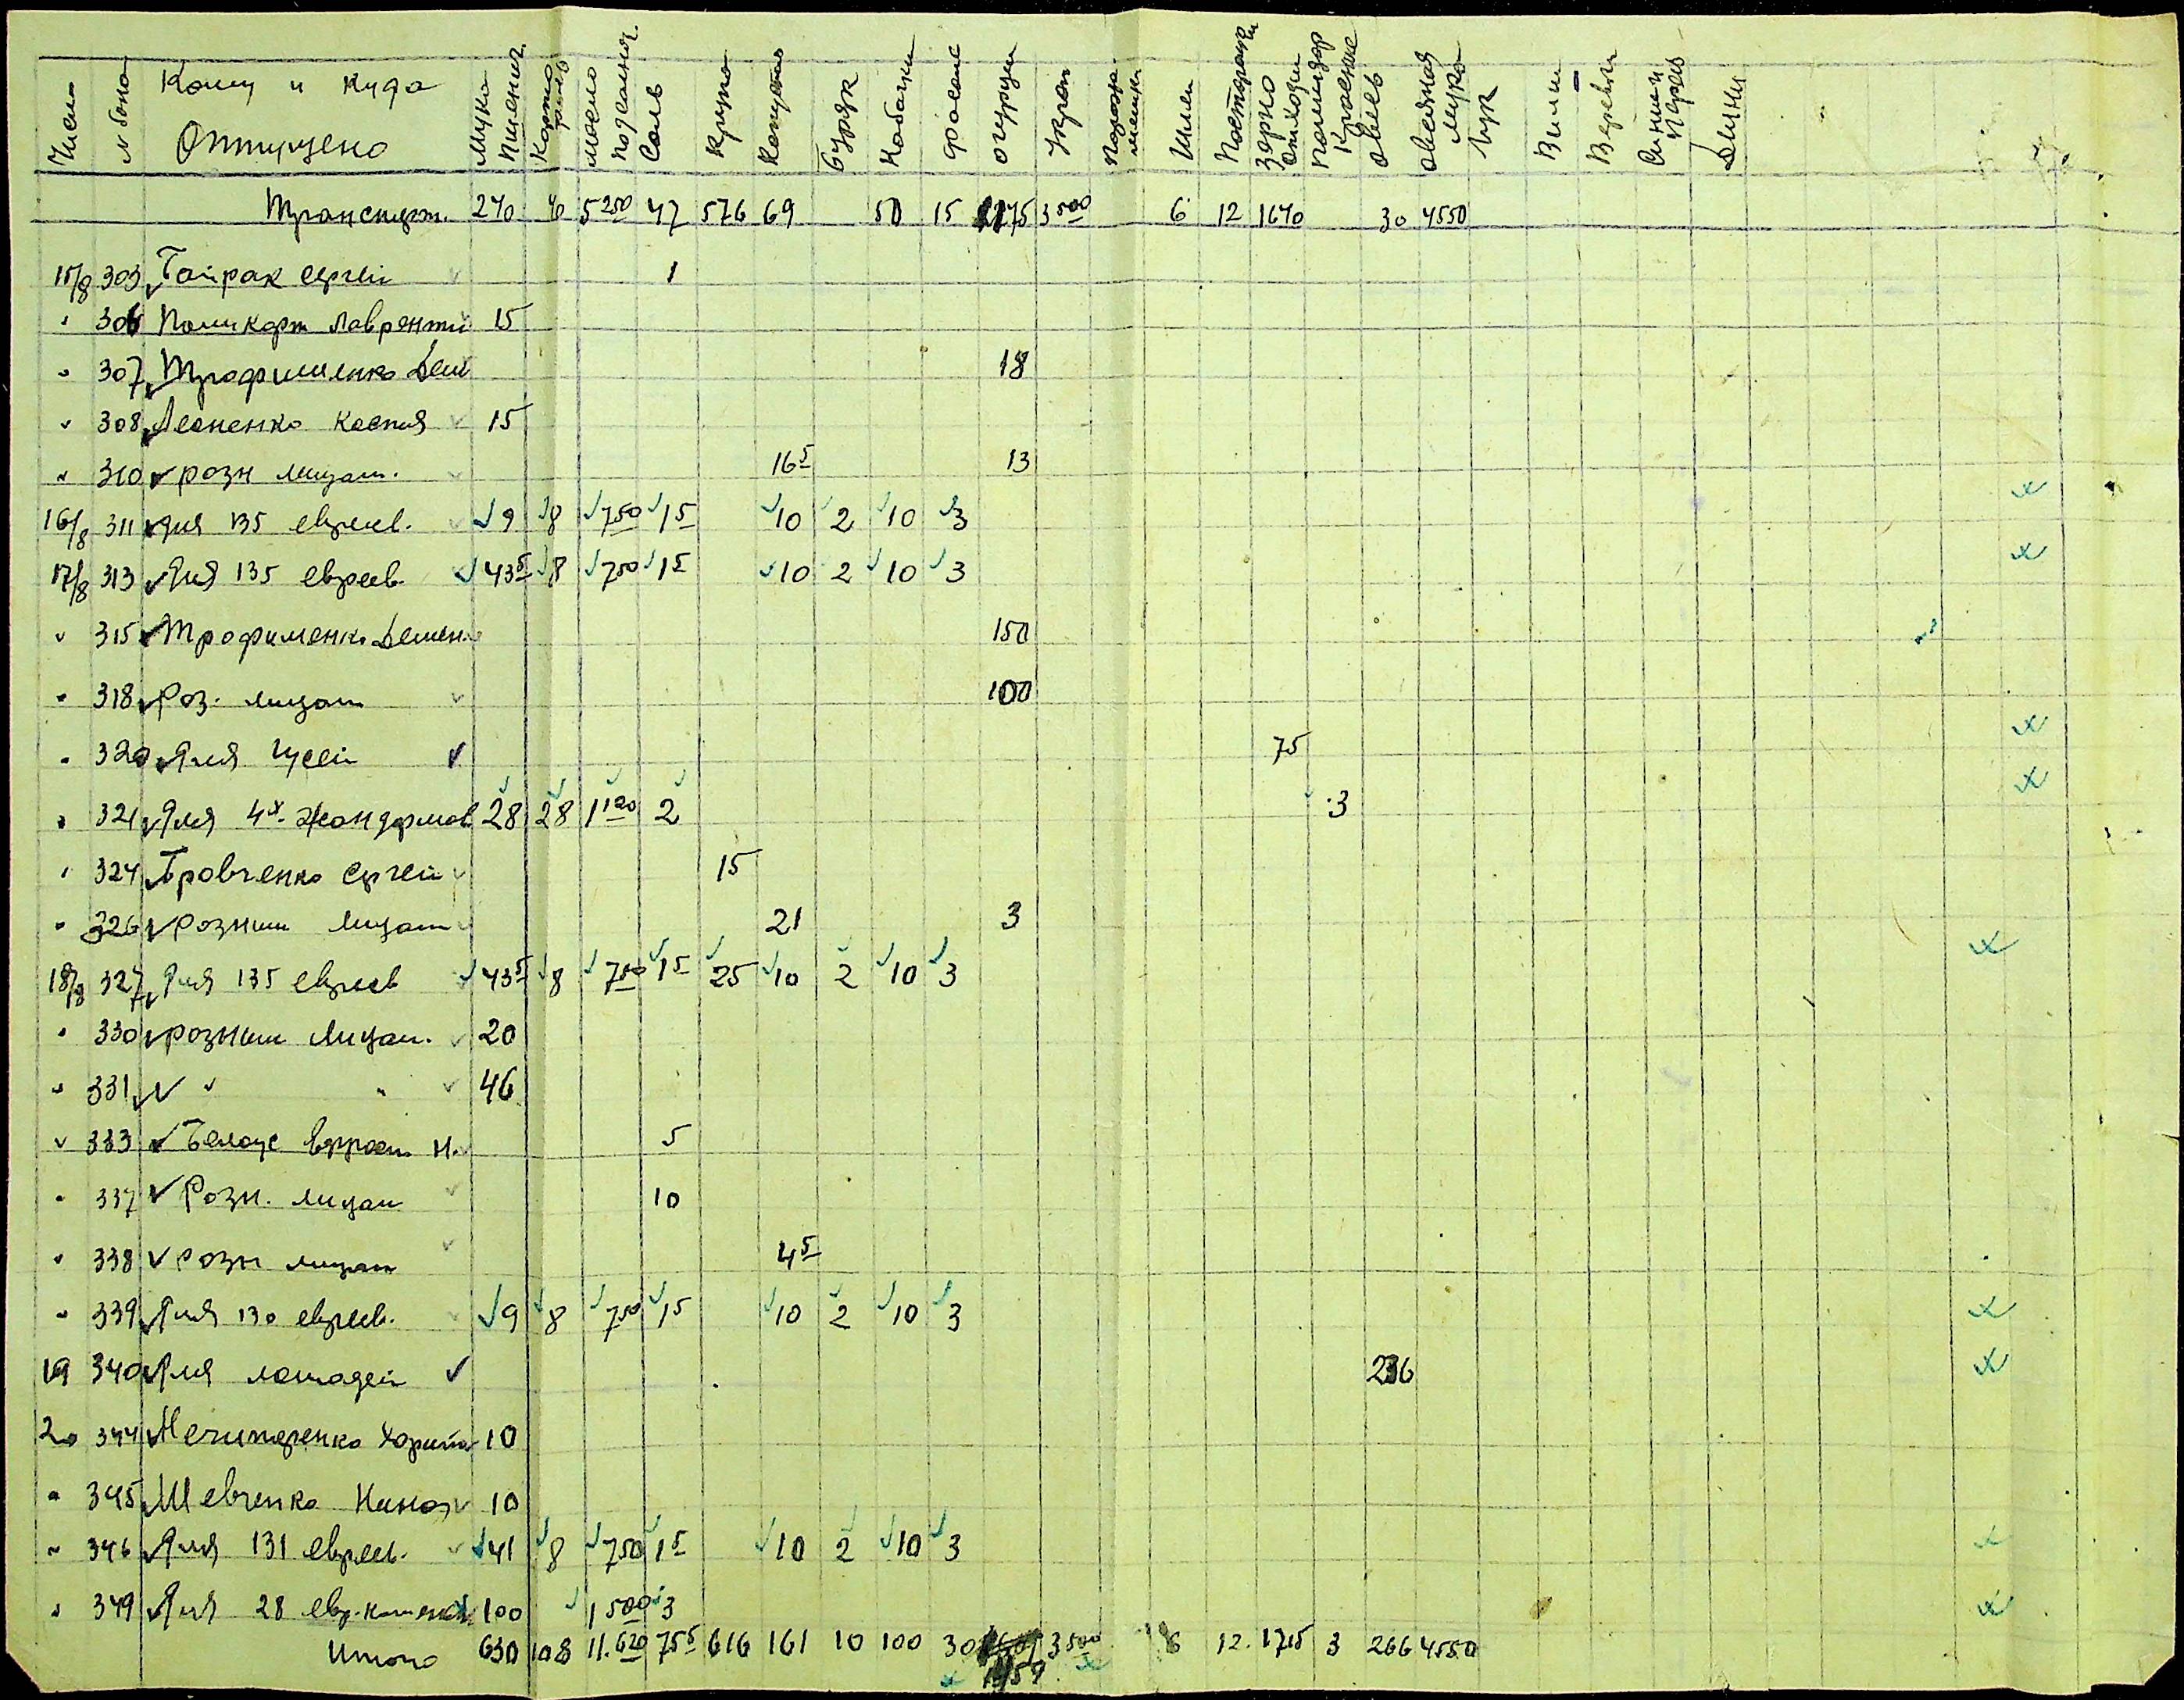 Число № бона Кому и куда Отпущено Мука пшенич. Картофель масло подсолнеч. Соль крупа капуста буряк кабачки фасоль огурцы укроп Шлеи Постромки зерно отходы помидор красные овёс овсяная мука лук Вилы Веревки Синий перец Дыни
Транспорт. 240 40 5 250 47 576 69 50 15 1175 3 500 6 12 1640 30 4550
15/8 303 Байрак Сергей 1
" 306 Поликарп Лаврентий 15
" 307 Трофименко Дем 18
" 308 Леоненко Костя 15
" 310 розн лицам. 16 5 13
16/8 311 для 135 евреев. 9 8 750 1 5 10 2 10 3
17/8 313 Для 135 евреев. 43 5 8 750 1 5 10 2 10 3
" 315 Трофименко Демен. 150
" 318 Роз. лицам 100
" 320 Для гусей 75
" 321 Для 4х жандармов 28 28 1 120 2 3
" 324 Бровченко Сергей 15
" 326 Розным лицам 21 3
18/8 327 Для 135 евреев 43 5 8 750 1 5 25 10 2 10 3
" 330 розным лицам. 20
" 331 " " 46
" 333 Белоус Н. 5
" 337 Розн. лицам 10
" 338 Розн лицам 4 5
" 339 Для 130 евреев. 9 8 750 1 5 10 2 10 3
19 340 Для лошадей 236
20 344 Нечипоренко Харитон 10
" 345 Шевченко Нина 10
" 346 Для 131 евреев. 41 8 750 1 5 10 2 10 3
" 349 Для 28 евр. 100 1 500 3
Итого 630 108 11.620 75 5 616 161 10 100 30 3 500 6 12. 1715 3 266 4550
1459